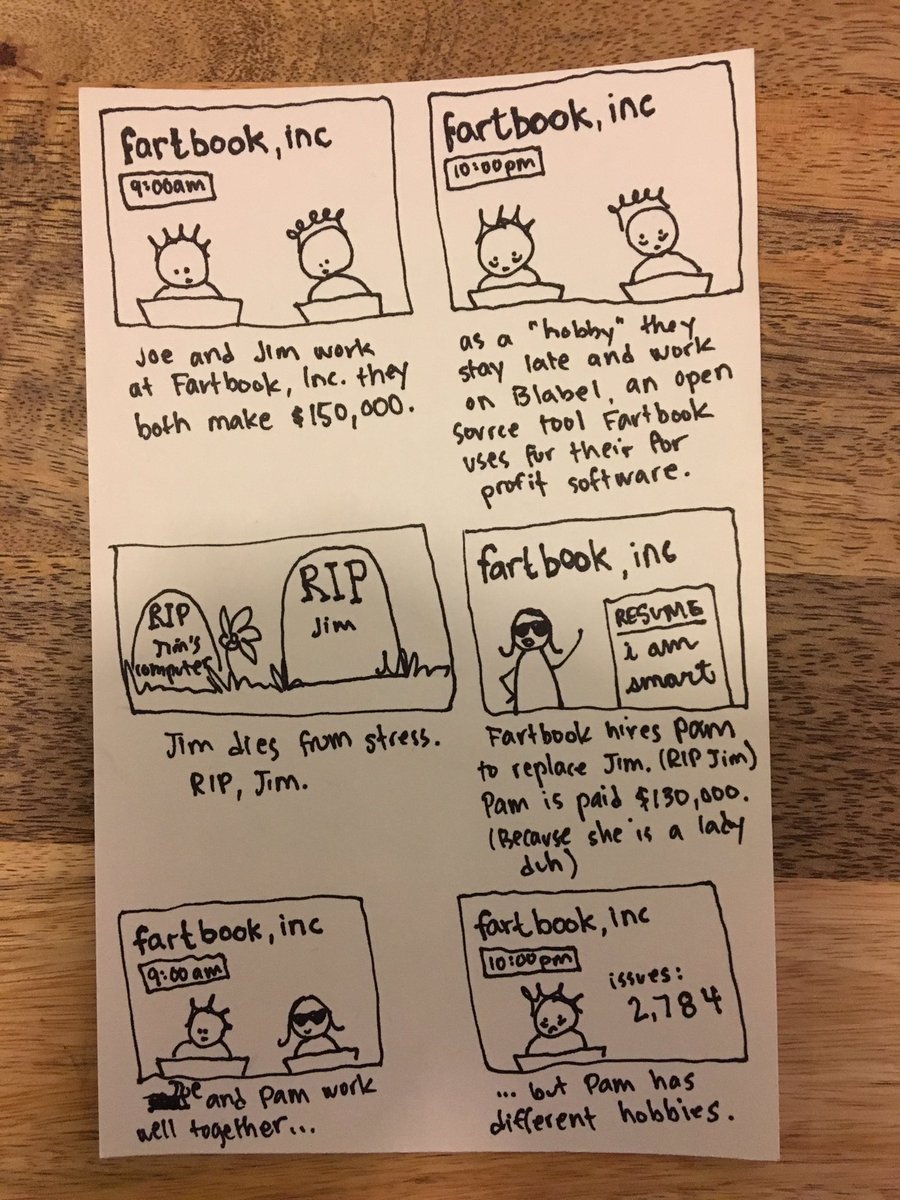 fartbook, inc
9:00am
Joe and Jim work
at Fartbook, Inc. they
both make $150,000.
fartbook, inc
10:00pm
as a "hobby" they
stay late and work
on Blabel, an open
source tool Fartbook
uses for their for
profit software.
RIP
Jim's
computer
RIP
Jim
Jim dies from stress.
RIP, Jim.
fartbook, inc
RESUME
i am
smart
Fartbook hires Pam
to replace Jim. (RIP Jim)
Pam is paid $130,000.
(Because she is a lady
duh)
fartbook, inc
9:00am
Joe and Pam work
well together...
fartbook, inc
10:00pm
issues:
2,784
... but Pam has
different hobbies.